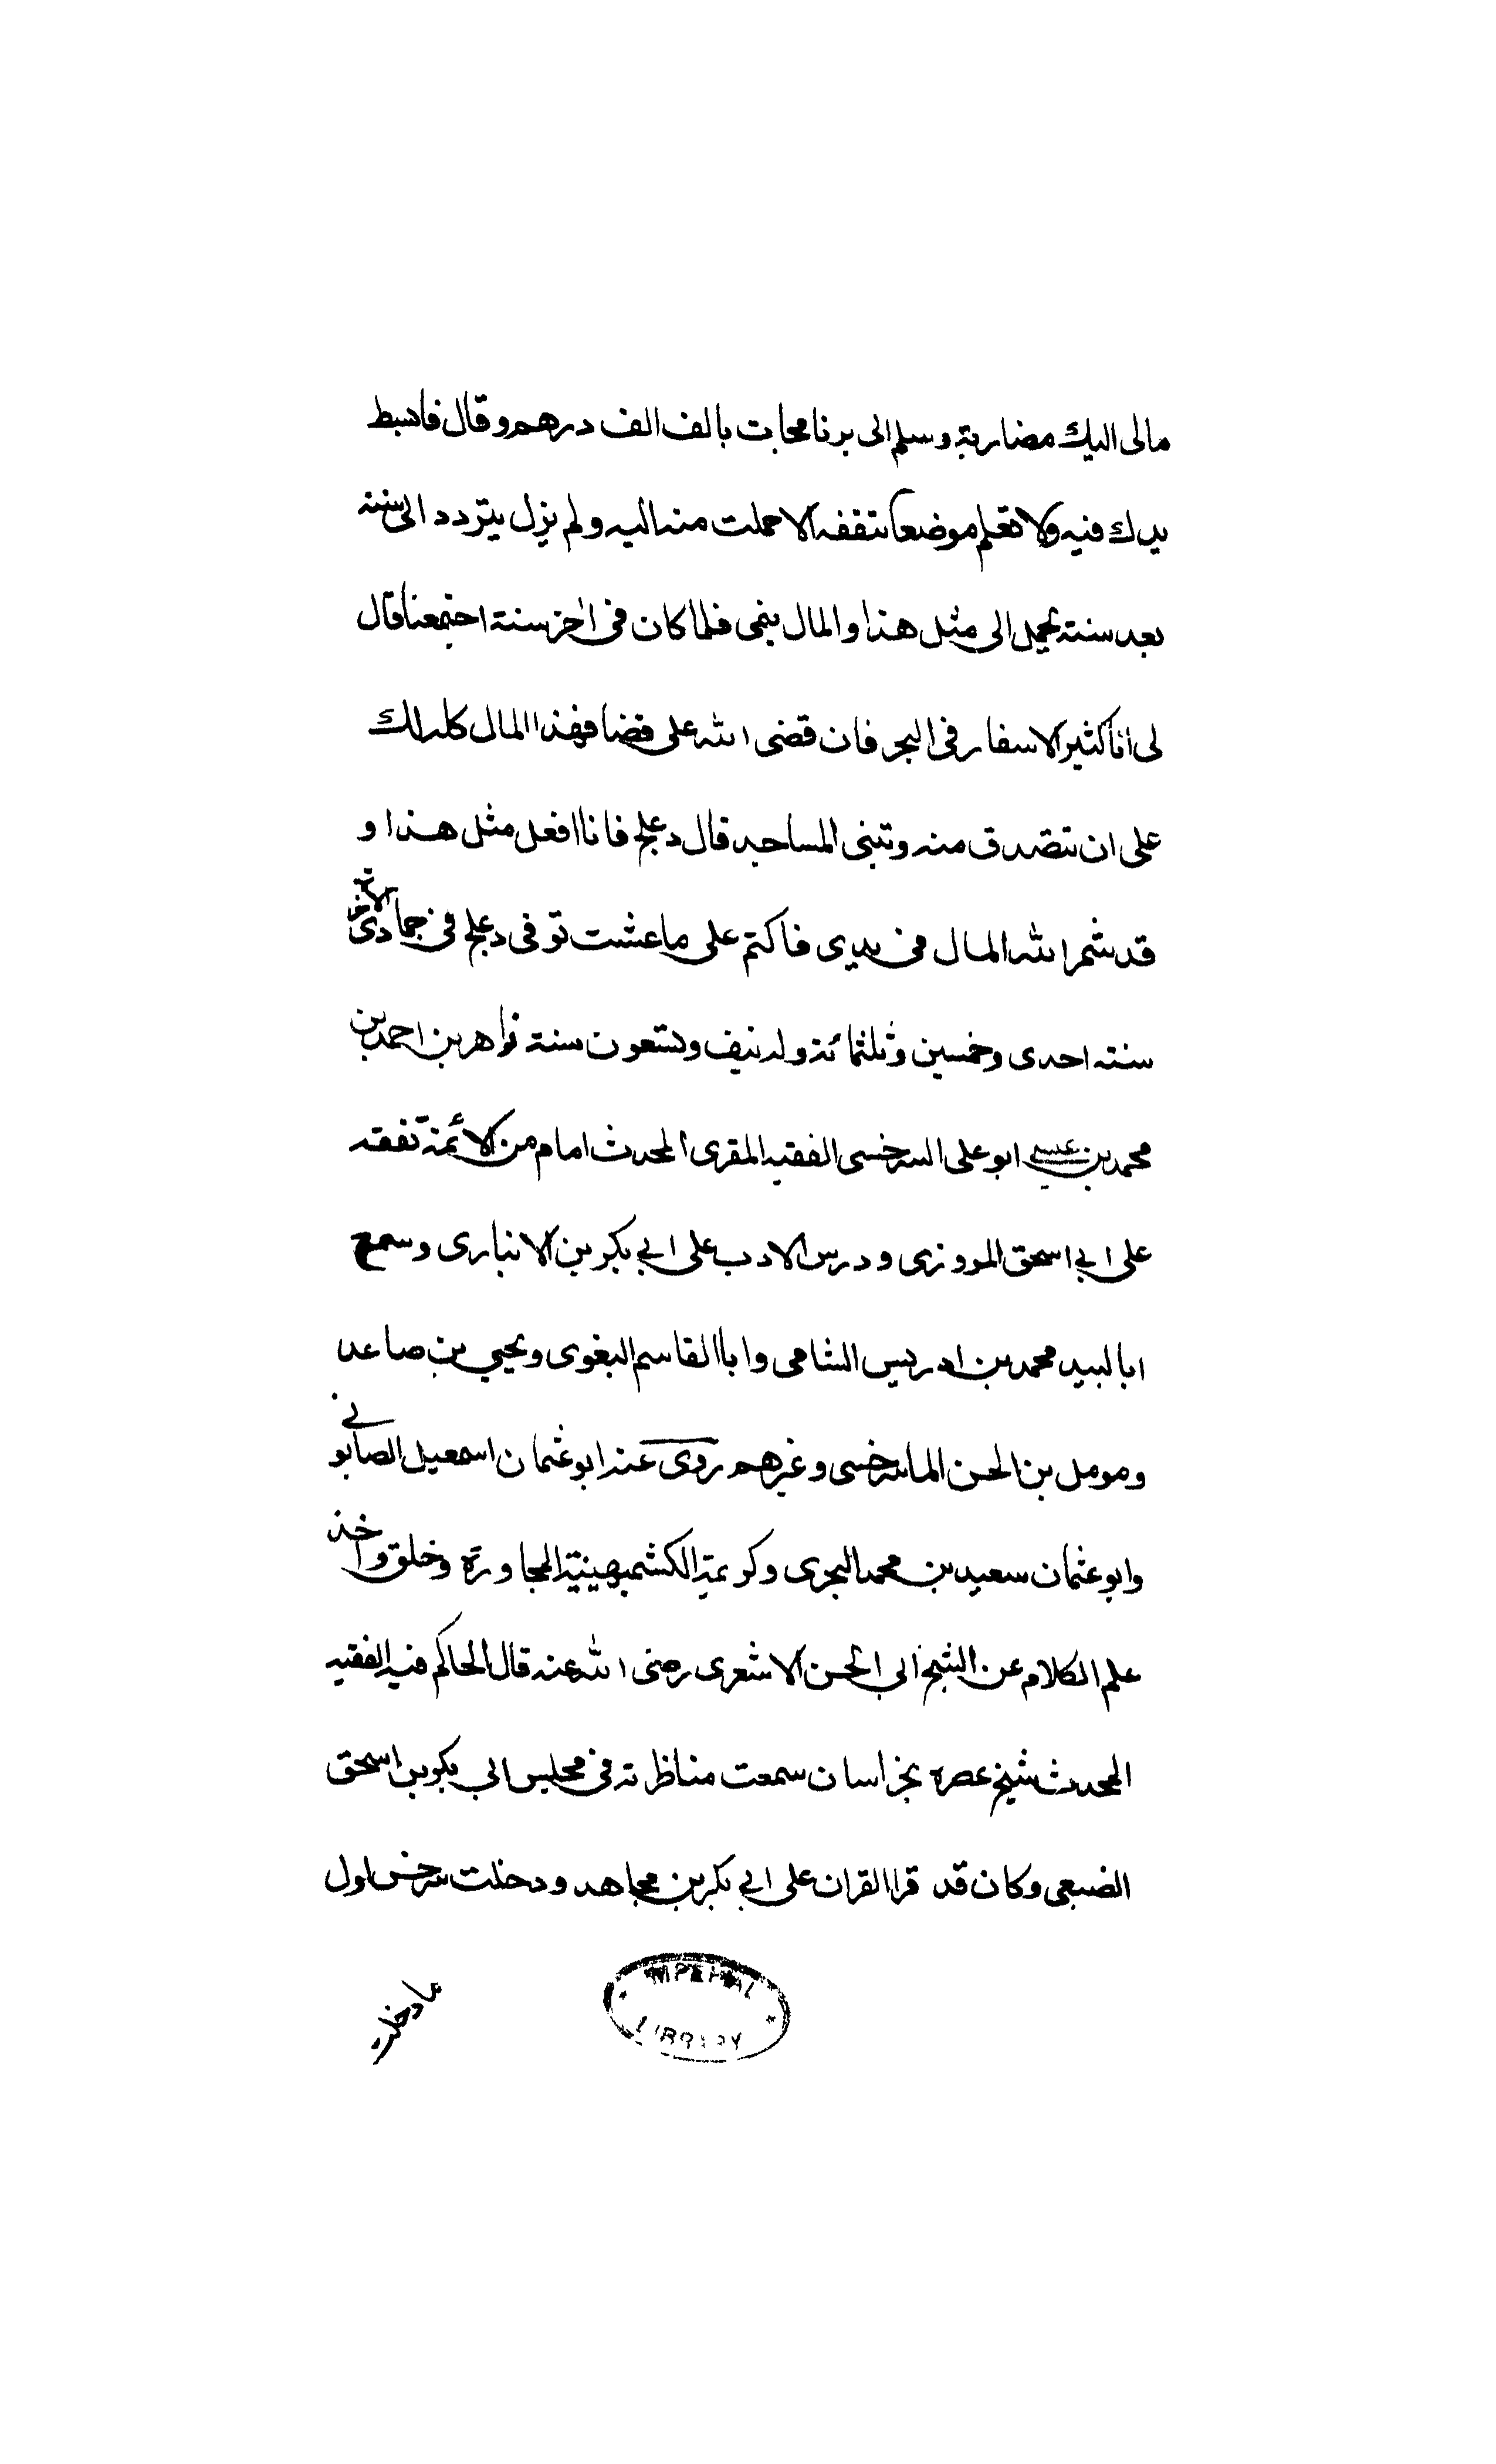 مالى اليك مضاربة وسلم الى برنامجات بالف الف درهم وقال فابسط
يدك فيه ولا تعلم موضعا تنفقه الا حملت منه اليه ولم يزل يتردد الى سنة
بعد سنة يحمل الى مثل هذا والمال ينمى فلما كان فى اخر سنة اجتمعنا قال
لى انا كثير الاسفار فى البحر فان قضى الله على قضا فهذا المال كله لك
على ان تتصدق منه وتبنى المساجد قال دعلج فانا افعل مثل هذا و
قد ثمر الله المال فى يدى فاكتم على ما عشت توفى دعلج فى جمادى الاخرة
سنة احدى وخمسين وثلثمائة وله نيف وتسعون سنة زاهر بن احمد بن
محمد بن عيسى ابو على السرخسى الفقيه المقرى المحدث امام من الائمة تفقه
على ابى اسحق المروزى ودرس الادب على ابى بكر بن الانبارى وسمع
ابا لبيد محمد بن ادريس الشامى وابا القاسم البغوى ويحيى بن صاعد
ومومل بن الحسن الماسرخسى وغيرهم روى عنه ابو عثمان اسمعيل الصابونى
وابو عثمان سعيد بن محمد البحرى وكريمة الكشميهينية المجاورة وخلق واخذ
علم الكلام عن الشيخ ابى الحسن الاشعرى رضى الله عنه قال الحاكم فيه الفقيه
المحدث شيخ عصره بخراسان سمعت مناظرته فى مجلس ابى بكر بن اسحق
الضبعى وكان قد قرا القران على ابى بكر بن مجاهد ودخلت سرخس اول
ما دخلت
IMPERIAL LIBRARY